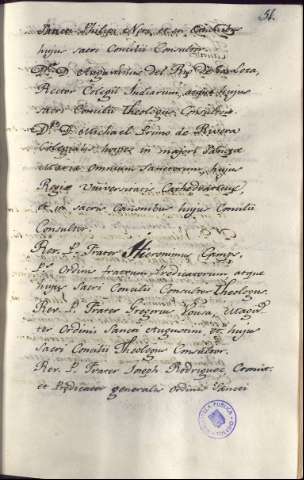 51.
Sancti Philipi Neri, et in Canonibus
hujus sacri Concilii Consultor.
Dr. D. Augustinus del
Rector Colegii Indiarum, atque hujus
sacri Concilii Theologus Consultor.
Dr. D. Michael Primo de Rivera
Colegialis in majori
Mariæ omnium Sanctorum, hujus
Regiæ Universitatis Cathedraticus,
et in sacris Canonibus hujus Concilii
Consultor.
Rev. P. Frater Hieronimus Camps
Ordinis fratrum Predicatorum atque
hujus Sacri Concilii Consultor Theologus.
Rev. P. Frater Gregorius Magis
ter Ordinis Sancti Augustini et hujus
Sacri Concilii Theologus Consultor.
Rev. P. Frater Joseph Rodriguez Cronist.
et Predicator generalis ordinis Sancti
BIBLIOTECA PUBLICA